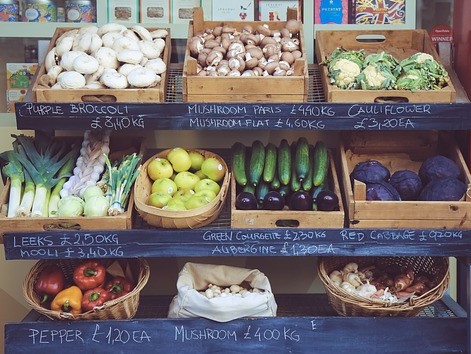 WINNER
PURPLE BROCCOLI
£8,40KG
MUSHROOM PARIS £4,40KG
MUSHROOM FLAT £4,60KG
CAULIFLOWER
£3,20EA
LEEKS £2,50KG
MOOLI £3,40KG
GREEN COURGETTE £2,30KG
AUBERGINE £1,30EA
RED CABBAGE £0,90KG
PEPPER £1,20EA
MUSHROOM £4,00KG
E